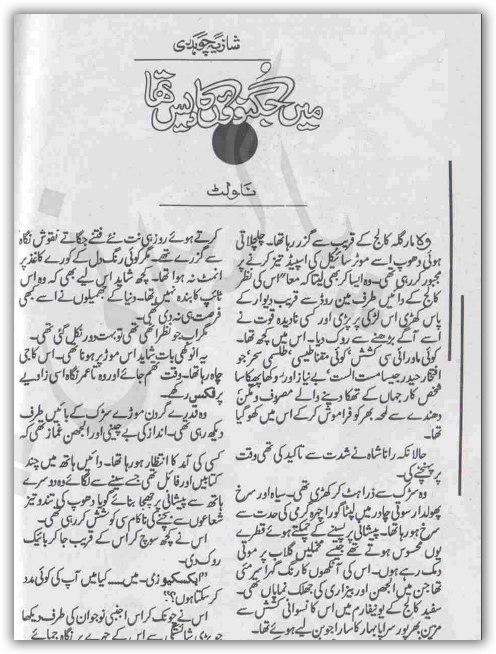 شازیہ چوہدری
میں جگنوؤں کا دیس تھا
ناولٹ
وہ مارگلہ کالج کے قریب سے گزر رہا تھا۔ چلچلاتی
ہوئی دھوپ اسے موٹر سائیکل کی اسپیڈ تیز کرنے پر
مجبور کر رہی تھی۔ وہ ایسا کر بھی لیتا کہ معا" اس کی نظر
کالج کے دائیں طرف مین روڈ سے قریب دیوار کے
پاس کھڑی اس لڑکی پر پڑی اور کسی نادیدہ قوت نے
اسے آگے بڑھنے سے روک دیا۔ اس میں کچھ تھا۔
کوئی ماورائی سی کشش، کوئی مقناطیسی، طلسمی سحر جو
افتخار حیدر جیسا مست الست، بے نیاز اور سوکھا پھیکا سا
شخص کار جہاں کے تھکا دینے والے مصروف و مگن
دھندے سے لمحہ بھر کو فراموش کر کے اس میں کھو گیا
تھا۔
حالانکہ رانا شاہ نے شدت سے تاکید کی تھی وقت
پر پہنچنے کی۔
وہ سڑک سے ذرا ہٹ کر کھڑی تھی۔ سیاہ اور سرخ
پھولدار سوتی چادر میں لپٹا گورا چہرہ گرمی کی حدت سے
سرخ ہو رہا تھا۔ پیشانی پر پسینے کے چمکتے ہوئے قطرے
یوں محسوس ہوتے تھے جیسے مخملیں گلاب پر موتی
دمک رہے ہوں۔ اس کی آنکھوں کا رنگ گہرا سرمئی
تھا جن میں الجھن اور بیزاری کی جھلک نمایاں تھی۔
سفید کالج کے یونیفارم میں اس کا نسوانی کشش سے
مزین بھرپور سراپا بہار کا سارا جوبن لیے ہوئے تھا۔
کرتے ہوئے روز ہی نت نئے فتنے جگاتے نقوش نگاہ
سے گزرے تھے۔ مگر کوئی رنگ دل کے کورے کاغذ پر
انمٹ نہ ہوا تھا۔ کچھ شاید اس لیے بھی کہ وہ اس
ٹائپ کا بندہ نہیں تھا۔ دنیا کے جھمیلوں نے اسے کبھی
فرصت ہی نہ دی تھی۔
مگر اب جو نظر اٹھی تھی تو بہت دور نکل گئی تھی۔
یہ انوکھی بات شاید اس موڑ پر ہونا تھی۔ اس کا جی
چاہ رہا تھا۔ وقت تھم جائے اور وہ تا عمر نگاہ اسی زاویے
پر فکس رکھے۔
وہ قدرے گردن موڑے سڑک کے بائیں طرف
دیکھ رہی تھی۔ انداز کی بے چینی اور الجھن غماز تھی کہ
کسی کی آمد کا انتظار ہو رہا تھا۔ دائیں ہاتھ میں چند
کتابیں اور فائل تھی جسے سینے سے لگائے وہ دوسرے
ہاتھ سے پیشانی پر چھجا بنائے گویا دھوپ کی تند و تیز
شعاعوں سے بچنے کی ناکام سی کوشش کر رہی تھی۔
اس نے کچھ سوچ کر اس کے قریب جا کر بائیک
روک دی۔
"ایکسکیوزی۔ میں ۔۔۔۔ کیا میں آپ کی کوئی مدد
کر سکتا ہوں؟"
اس نے چونک کر اس اجنبی نوجوان کی طرف دیکھا
جو بڑی شائستگی سے اس کے چہرے پر نگاہ جمائے